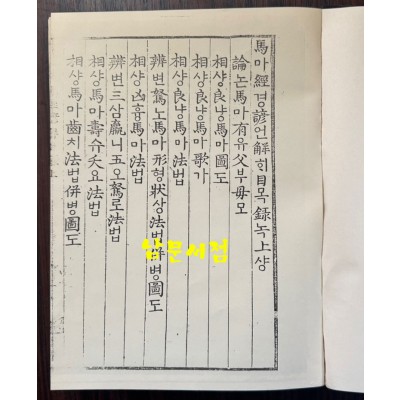 馬마經경諺언解히目목錄녹上샹
論논馬마有유父부母모
相샹良냥馬마圖도
相샹良냥馬마歌가
相샹良냥馬마法법
辨변駑노馬마形형狀상法법併병圖도
相샹凶흉馬마法법
辨변三삼羸니五오駑로法법
相샹馬마壽슈夭요法법
相샹馬마齒치法법併병圖도
남문서점